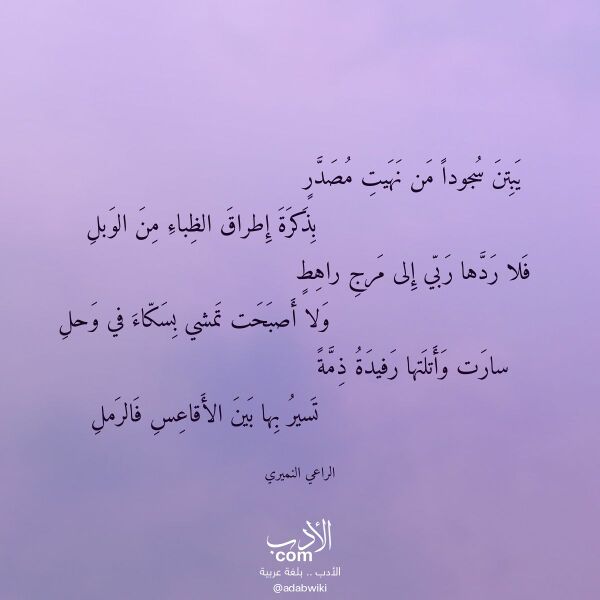 يَبِتنَ سُجوداً مَن نَهَيتِ مُصَدَّرٍ
بِذَكرَةَ إِطراقَ الظِباءِ مِنَ الوَبلِ
فَلا رَدَّها رَبّي إِلى مَرجِ راهِطٍ
وَلا أَصبَحَت تَمشي بِسَكّاءَ في وَحلِ
سارَت وَأَتلَتها رَفيدَةُ ذِمَّةً
تَسيرُ بِها بَينَ الأَقاعِسِ فَالرَملِ
الراعي النميري
الأدب
.com
الأدب .. بلغة عربية
@adabwiki